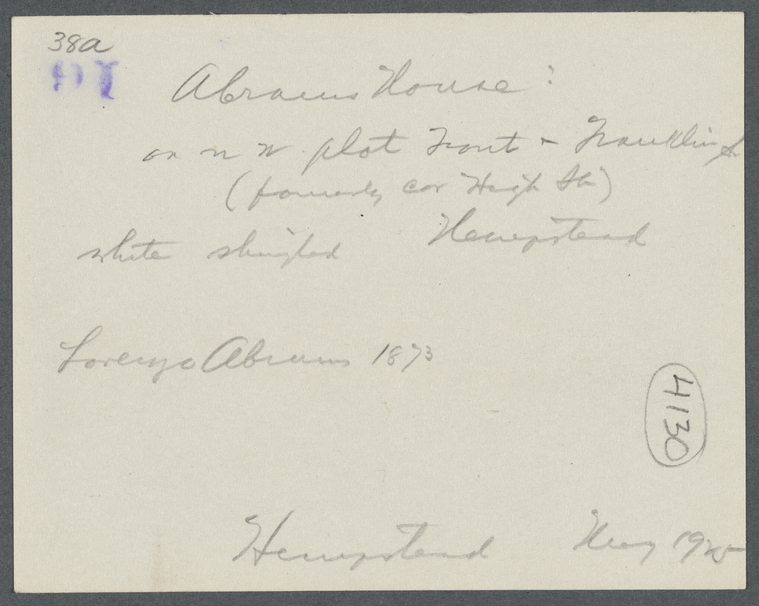 38a
91
Abrams House:
on n w plot Front & Franklin St
(formerly cor High St)
Hempstead
white shingled
Lorenzo Abrams 1873
4130
Hempstead May 1925